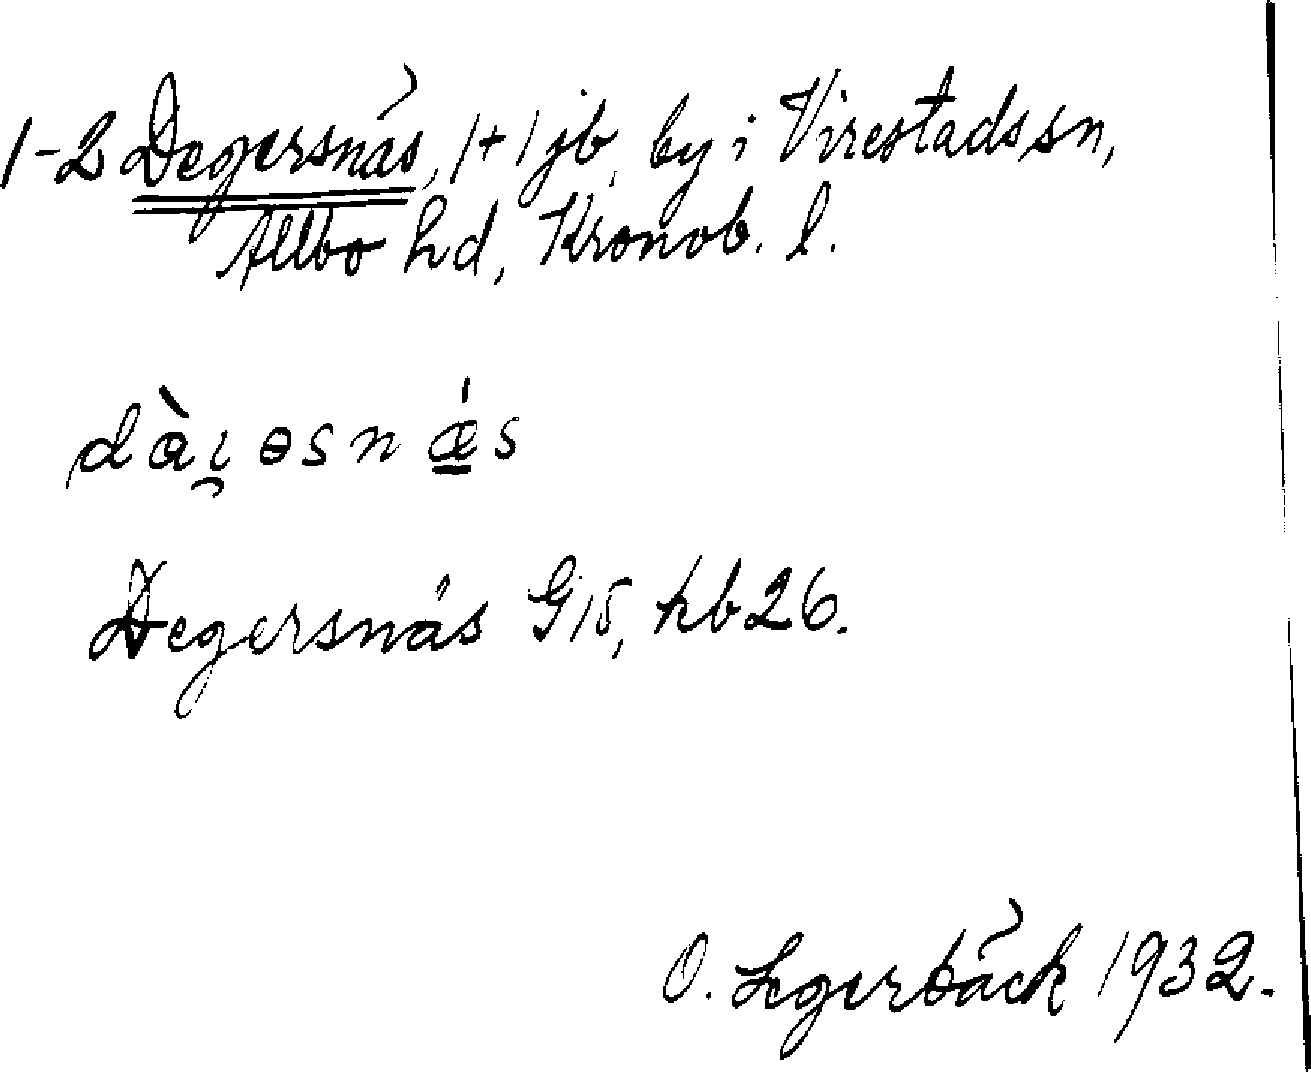 1-2 Degersnäs, 1+1 jb, by i Virestads sn,
Allbo hd, Kronob. l.
dàı̯əsnǽ̲s
Degersnäs G15, kb 26.
O. Legerbäck 1932.